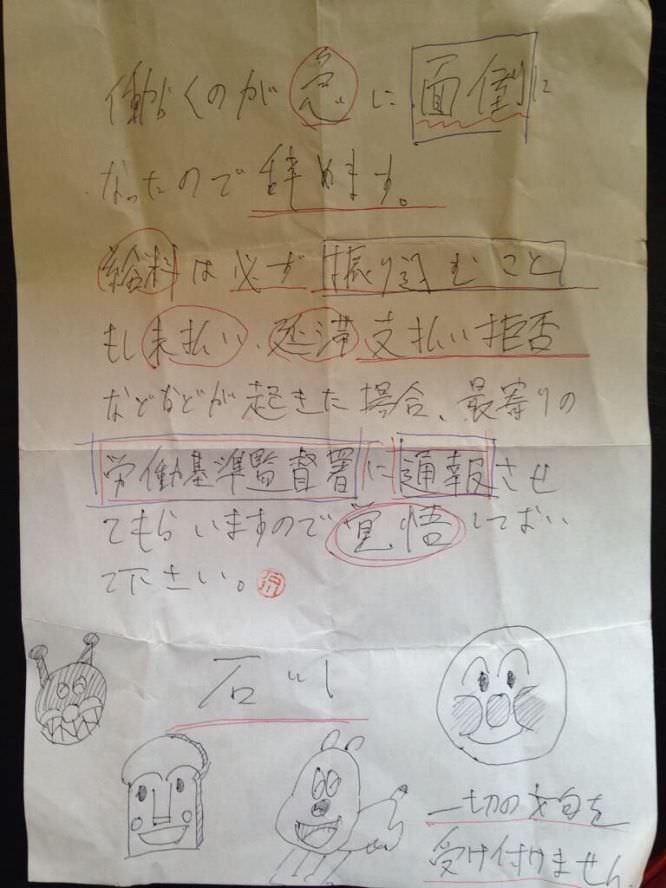 働くのが急に面倒に
なったので辞めます。
給料は必ず振り込むこと
もし未払い、延滞、支払い拒否
などなどが起きた場合、最寄りの
労働基準監督署に通報させ
てもらいますので覚悟しておい
て下さい。
石川
一切の文句を
受け付けません。